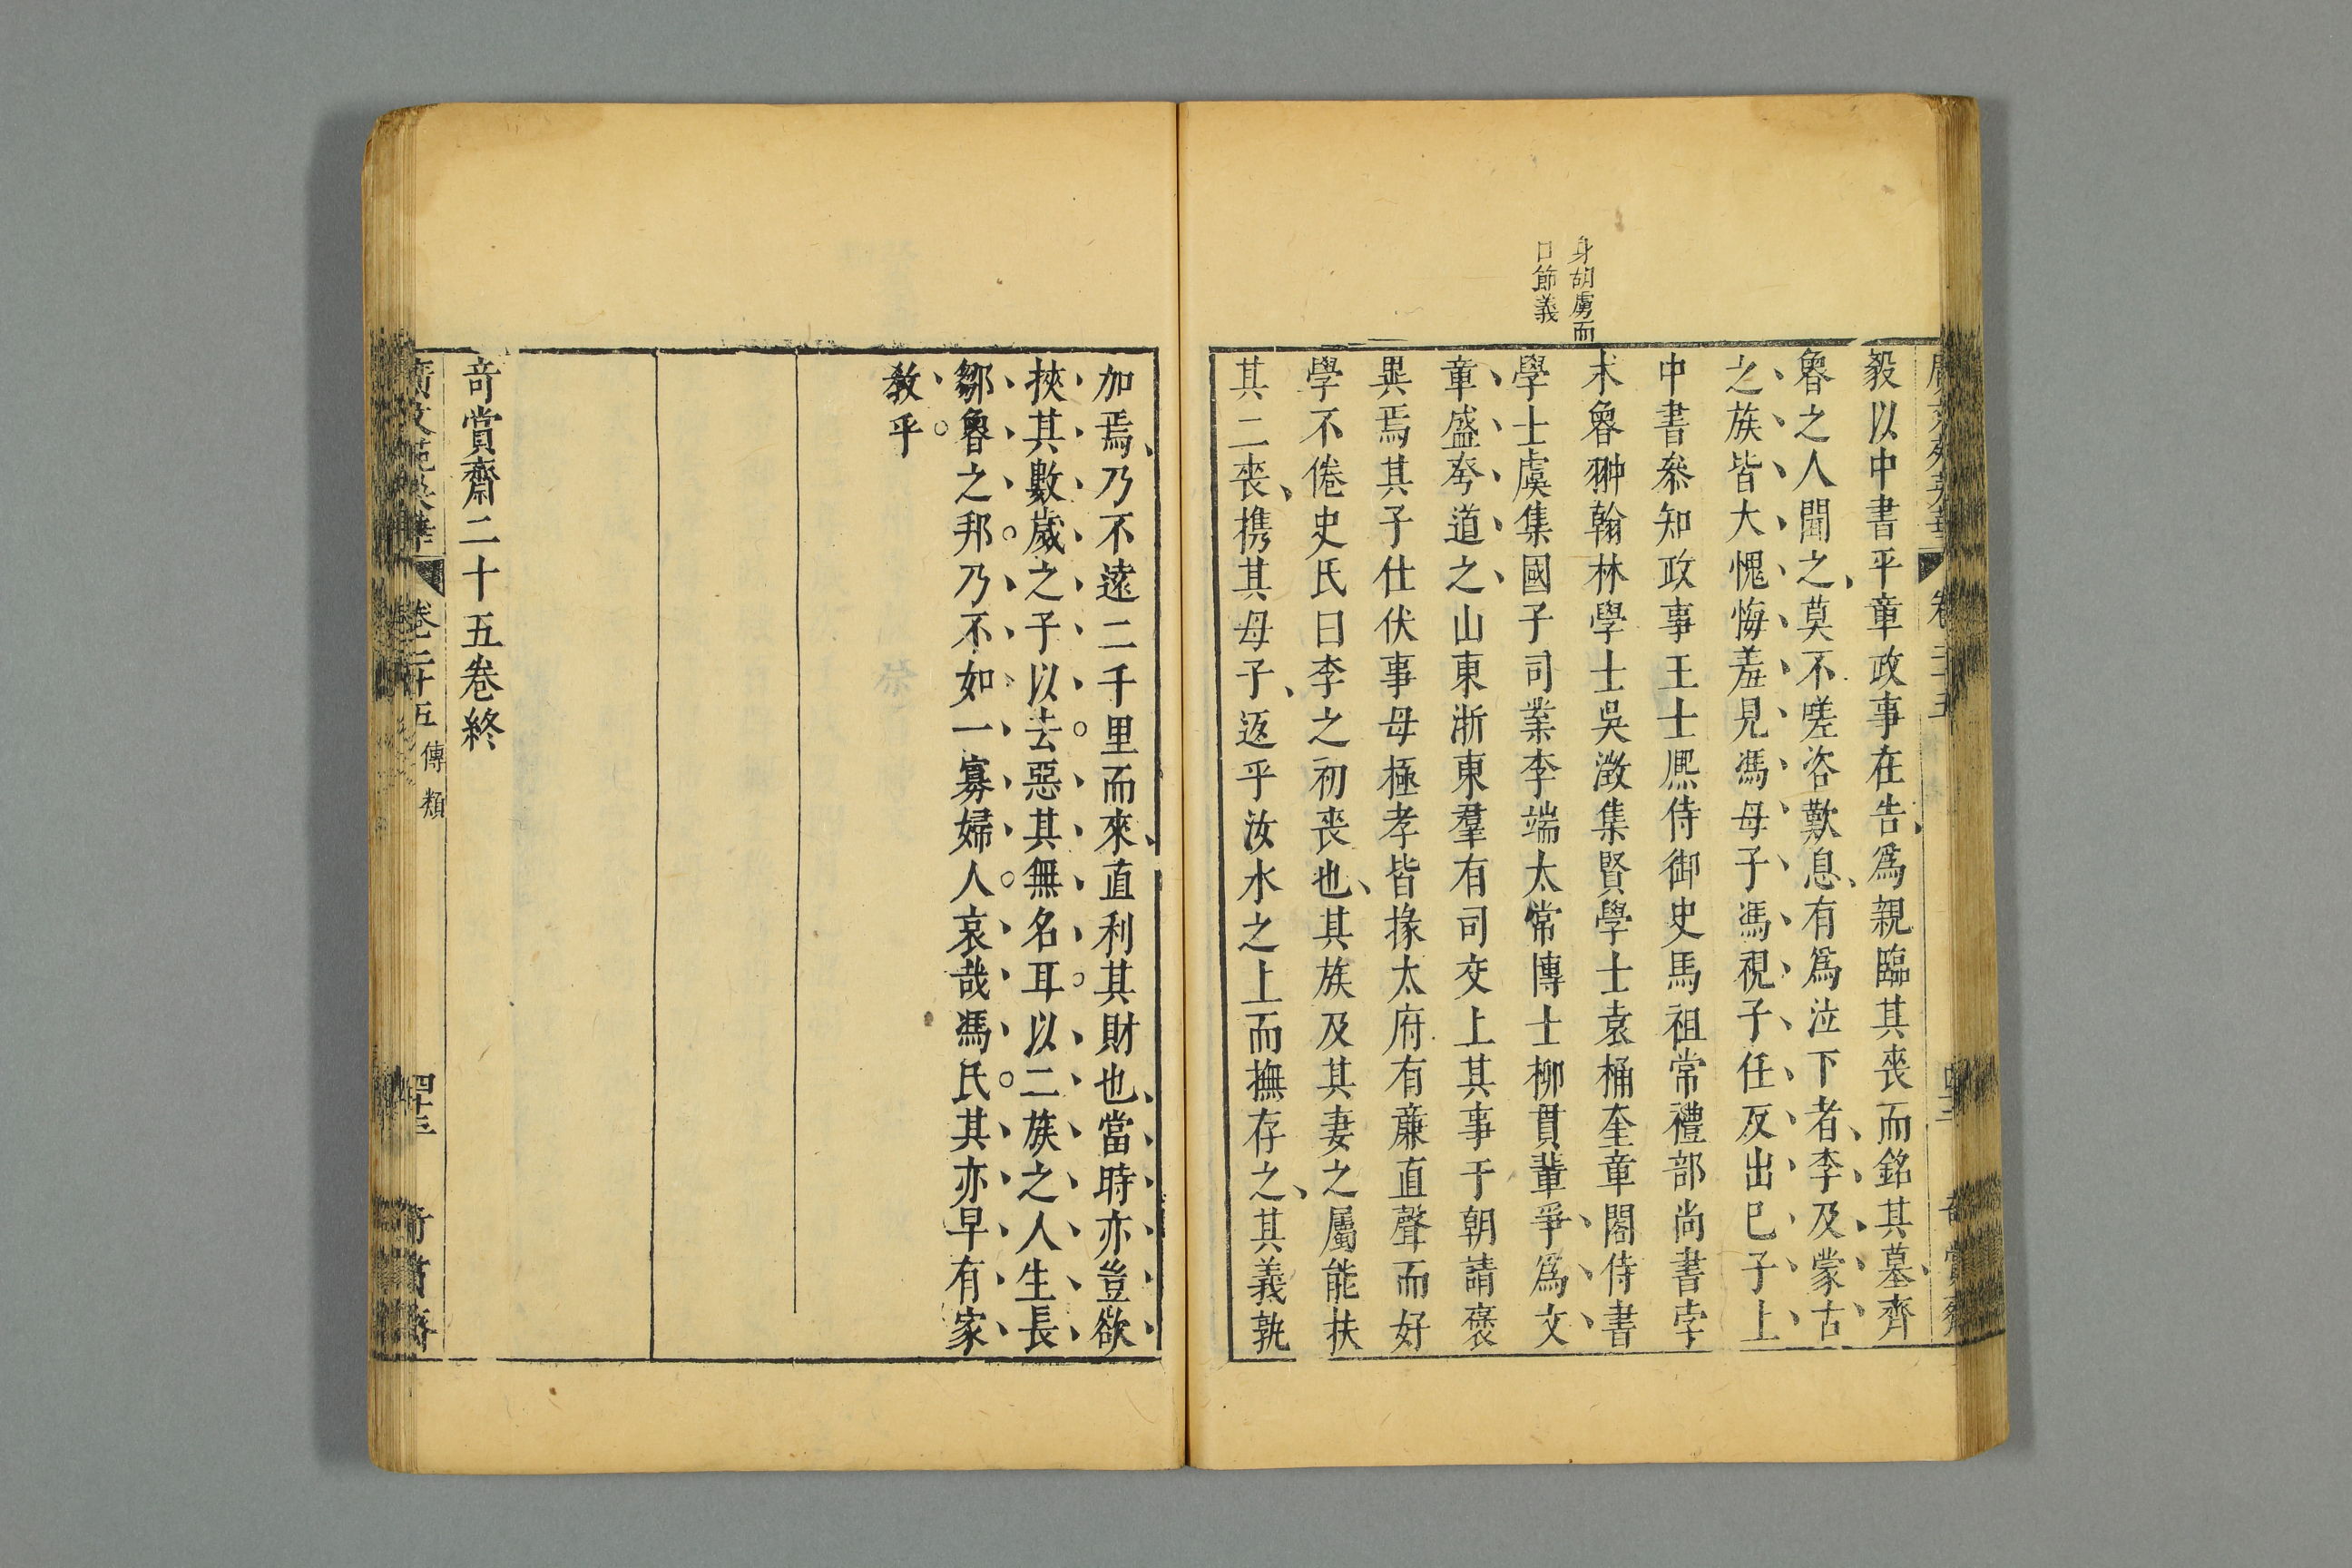 身胡虜而
口節義
毅以中書平章政事在告爲親臨其喪而銘其墓齊
魯之人聞之莫不嗟咨歎息有爲泣下者李及蒙古
之族皆大愧悔羞見馮母子馮視子任反出巳子上
中書叅知政事王士熈侍御史馬祖常禮部尚書孛
术魯翀翰林學士吳澂集賢學士袁桷奎章閣侍書
學士虞集國子司業李端太常博士柳貫輩爭爲文
章盛夸道之山東浙東羣有司交上其事于朝請褒
異焉其子仕伏事母極孝皆掾太府有蘼直聲而好
學不倦史氏曰李之初喪也其族及其妻之屬能扶
其二喪携其母子返乎汝水之上而撫存之其義孰
加焉乃不遠二千里而來直利其財也當時亦豈欲
挾其數歲之子以去惡其無名耳以二族之人生長
鄒魯之邦乃不如一寡婦人哀哉馮氏其亦早有家
敎乎
奇賞齋二十五卷終
卷二十五 傳類
四十三